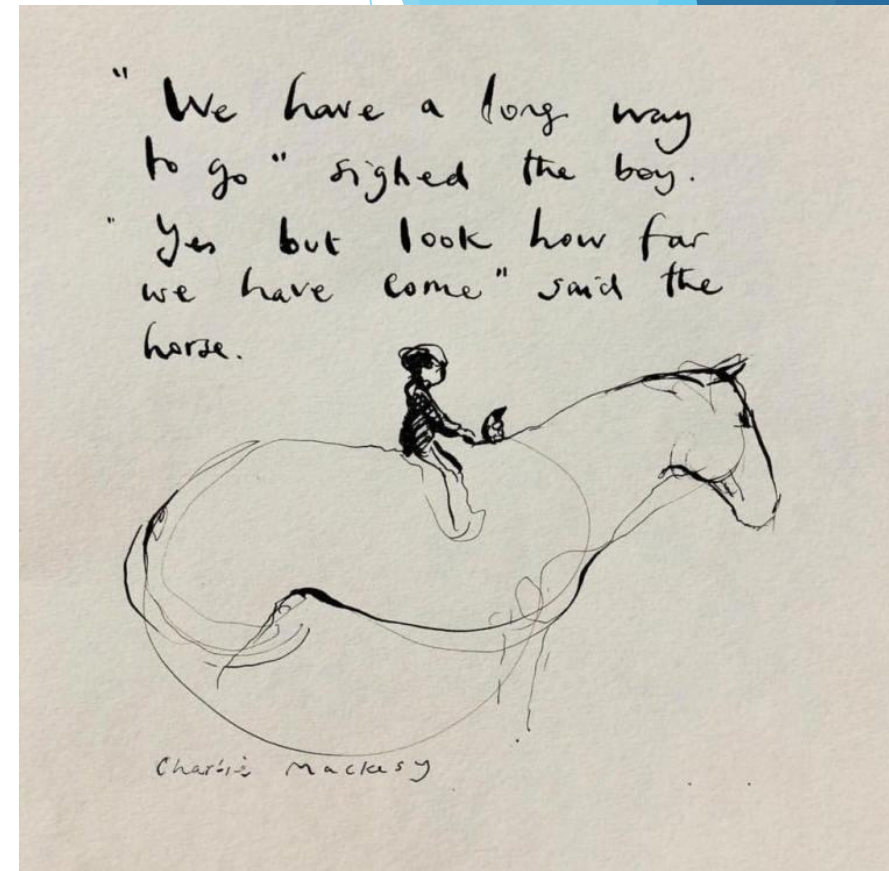 "We have a long way
to go" sighed the boy.
"Yes but look how far
we have come" said the
horse.
Charlie Mackesy